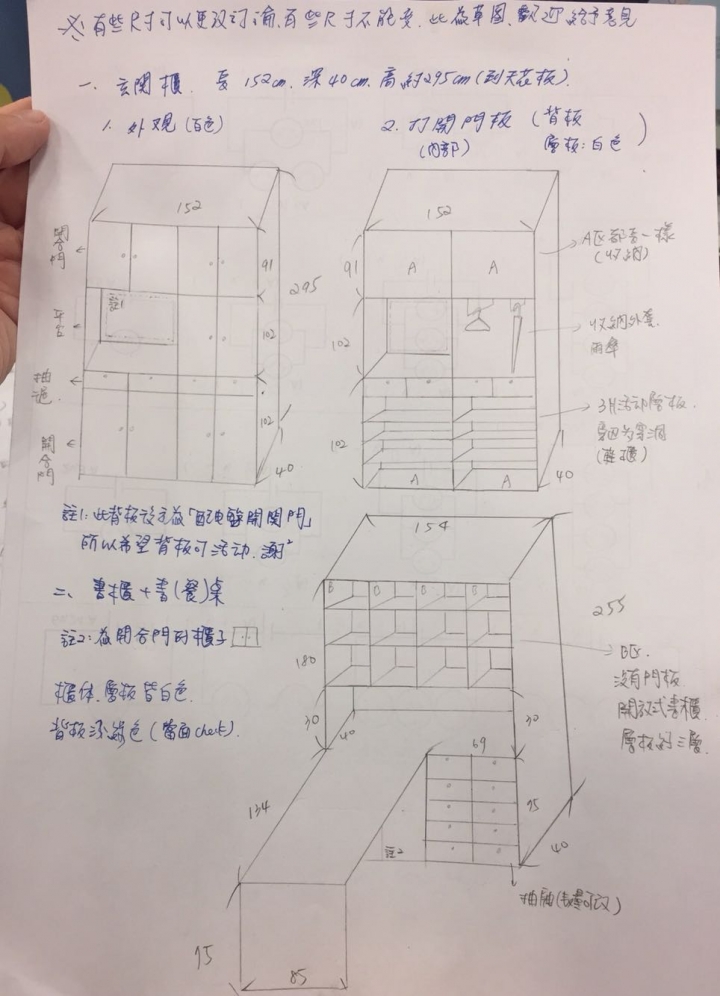 ※有些尺寸可以更改討論,有些尺寸不能變.此為草圖,歡迎給予意見
一、玄関櫃. 長152cm.深40cm.高約295cm(到天花板).
1. 外观(白色)
2. 打開門板(背板
(內部) 層板:白色)
152
開合門
91
295
平台
註1
102
抽屜
開合門
102
40
152
91
A A
A区都一樣
(收納)
102
收納外套.
雨傘
102
活動層板.
(鞋櫃)
A A
40
註1:此背板後為「配電盤開関門」
所以希望背板可活動.謝²
二、書櫃+書(餐)桌
註2:為開合門的櫃子
櫃体、層板皆白色.
背板深色(當面check).
154
255
B B B B
180
B区.
沒有門板
開放式書櫃
層板約三層
30
40
30
69
134
75
註2
40
抽屜(可改)
75
85